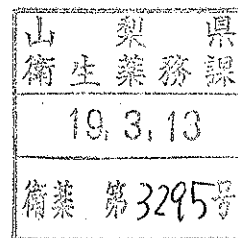 山梨県
衛生薬務課
19.3.13
衛薬 第3295号